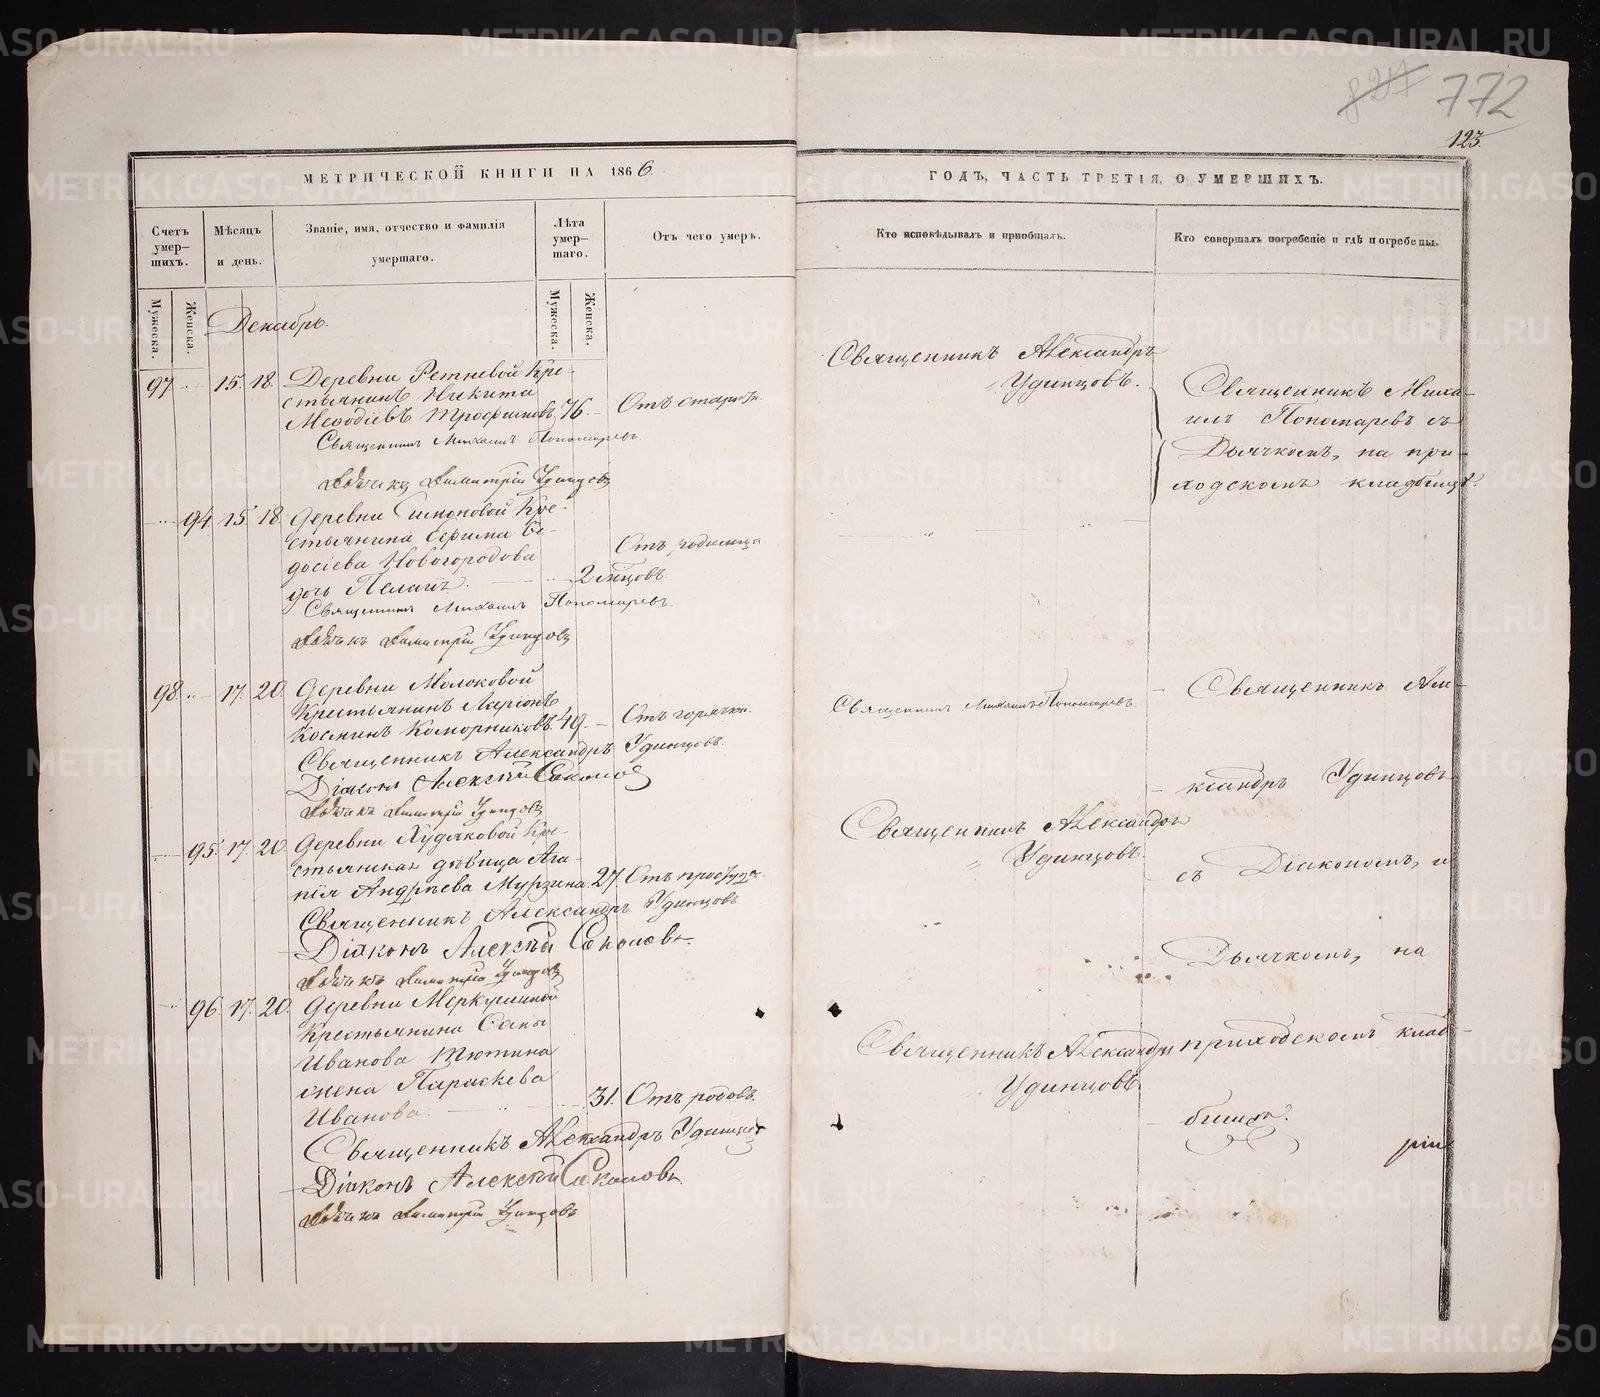 827 772
123.
МЕТРИЧЕСКОЙ КНИГИ НА 1866
Счетъ умер-шихъ.
Мѣсяцъ и день.
Званіе, имя, отчество и фамилія умершаго.
Лѣта умер-шаго.
Отъ чего умеръ.
Мужеска.
Женска.
Мужеска.
Женска.
Декабрь.
97 15. 18. Деревни Ретневой Кре-
стьянинъ Никита
Меѳодіевъ Трофимовъ 76. Отъ старости.
Священникъ Михаилъ Пономаревъ.
Дьячекъ Димитрій Удинцовъ
94 15 18 Деревни Симоновой Кре-
стьянина Ефима Ѳе-
досіева Новогородова Отъ родимца
дочь Пелагія. 2 мѣсцовъ
Священникъ Михаилъ Пономаревъ.
Дьячекъ Димитрій Удинцовъ
98. 17. 20. Деревни Молоковой
Крестьянинъ Ларіонъ
Косминъ Коморниковъ. 49. Отъ горячки.
Священникъ Александръ Удинцовъ.
Діаконъ Алексѣй Соколовъ
Дьячекъ Димитрій Удинцовъ
95. 17. 20. Деревни Худяковой Кре-
стьянская дѣвица Ага-
пія Андрѣева Мурзина. 27 Отъ простуды.
Священникъ Александръ Удинцовъ
Діаконъ Алексѣй Соколовъ.
Дьячекъ Димитрій Удинцовъ
96. 17. 20. Деревни Меркушиной
Крестьянина Савы
Иванова Тютина
жена Параскева
Иванова. 31. Отъ родовъ.
Священникъ Александръ Удинцовъ
Діаконъ Алексѣй Соколовъ.
Дьячекъ Димитрій Удинцовъ
ГОДЪ, ЧАСТЬ ТРЕТІЯ, О УМЕРШИХЪ.
Кто исповѣдывалъ и пріобщалъ.
Кто совершалъ погребеніе и гдѣ погребены.
Священникъ Александръ
Удинцовъ.
Священникъ Миха-
илъ Пономаревъ съ
Дьячкомъ, на при-
ходскомъ кладбищѣ.
Священникъ Михаилъ Пономаревъ.
Священникъ Але-
ксандръ Удинцовъ
Священникъ Александръ
Удинцовъ.
съ Діакономъ, и
Дьячкомъ, на
Священникъ Александръ
Удинцовъ.
приходскомъ клад-
бищѣ.
METRIKI.GASO-URAL.RU